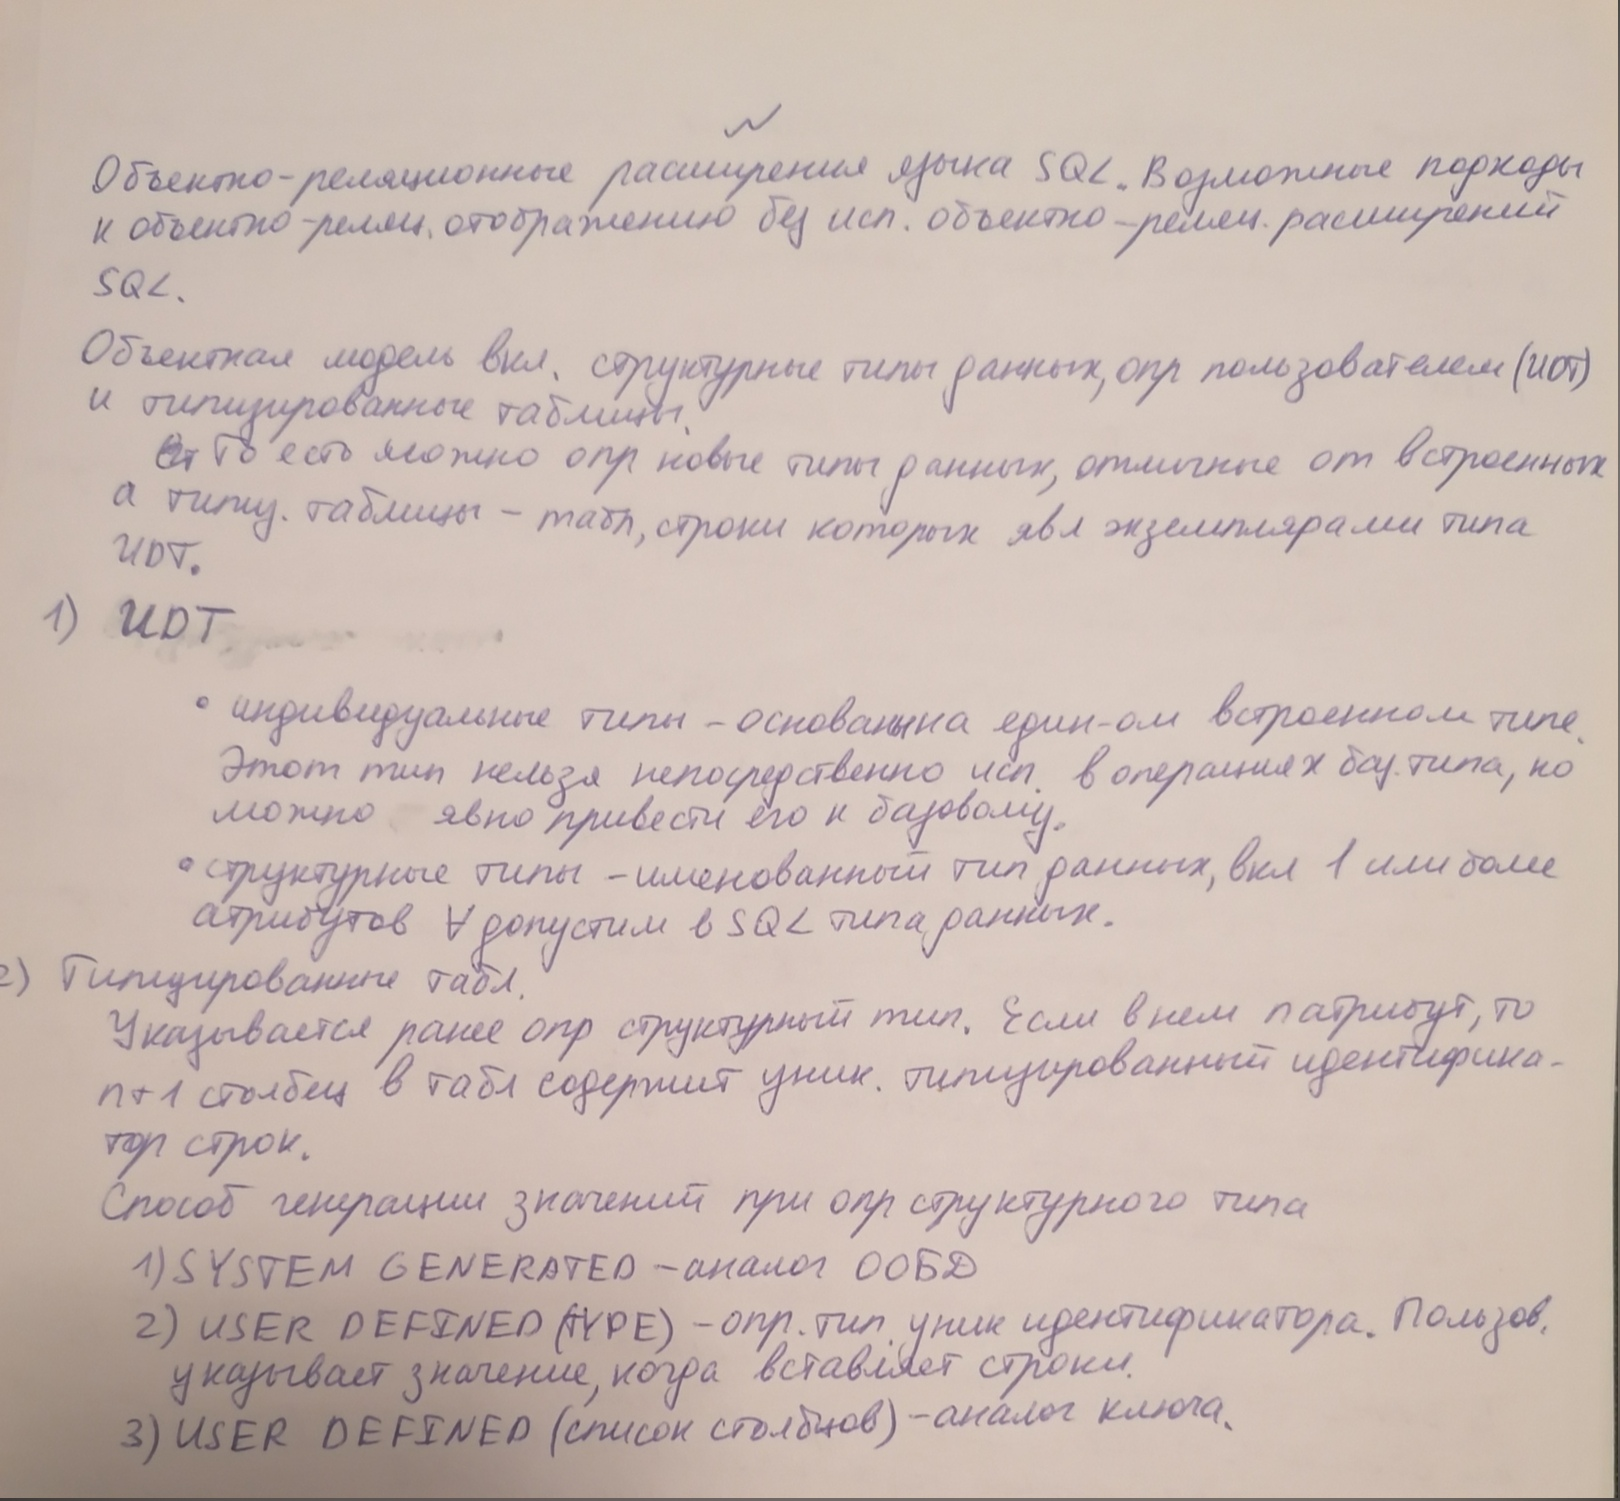 Объектно-реляционные расширения языка SQL. Возможные подходы
к объектно-реляц. отображению без исп. объектно-реляц. расширений
SQL.
Объектная модель вкл. структурные типы данных, опр пользователем (UDT)
и типизированные таблицы.
То есть можно опр новые типы данных, отличные от встроенных
а типиз. таблицы - табл, строки которых явл экземплярами типа
UDT.
1) UDT
• индивидуальные типы - основаны на един-ом встроенном типе.
Этот тип нельзя непосредственно исп. в операциях баз. типа, но
можно явно привести его к базовому.
• структурные типы - именованный тип данных, вкл 1 или более
атрибутов ∀ допустим в SQL типа данных.
2) Типизированные табл.
Указывается ранее опр структурный тип. Если в нем n атрибут, то
n+1 столбец в табл содержит уник. типизированный идентифика-
тор строк.
Способ генерации значений при опр структурного типа
1) SYSTEM GENERATED - аналог ООБД
2) USER DEFINED (TYPE) - опр. тип уник идентификатора. Пользов.
указывает значение, когда вставляет строки.
3) USER DEFINED (список столбцов) - аналог ключа.